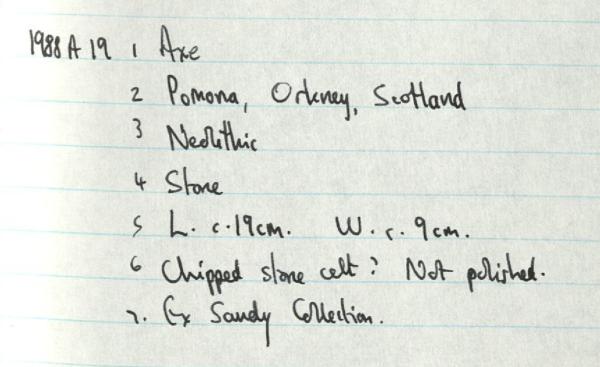 1988 A 19 1 Axe
2 Pomona, Orkney, Scotland
3 Neolithic
4 Stone
5 L. c. 19cm. W. c. 9cm.
6 Chipped stone celt? Not polished.
7. Ex Sandy Collection.